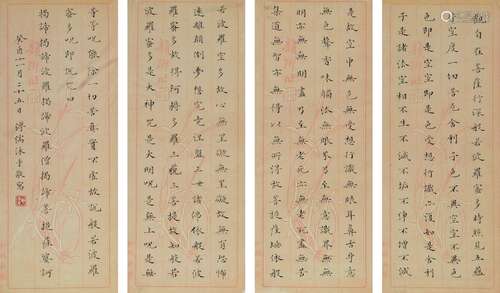 觀自在菩薩行深般若波羅蜜多時照見五蘊
皆空度一切苦厄舍利子色不異空空不異色
色即是空空即是色受想行識亦復如是舍利
子是諸法空相不生不滅不垢不淨不增不減
是故空中無色無受想行識無眼耳鼻舌身意
無色聲香味觸法無眼界乃至無意識界無無
明亦無無明盡乃至無老死亦無老死盡無苦
集道無智亦無得以無所得故菩提薩埵依般
若波羅蜜多故心無罣礙無罣礙故無有恐怖
遠離顛倒夢想究竟涅槃三世諸佛依般若波
羅蜜多故得阿耨多羅三藐三菩提故知般若
波羅蜜多是大神咒是大明咒是無上咒是無
等等咒能除一切苦真實不虛故說般若波羅
蜜多咒即說咒曰
揭諦揭諦波羅揭諦波羅僧揭諦菩提薩婆訶
癸酉十一月二十五日溥儒沐手敬寫